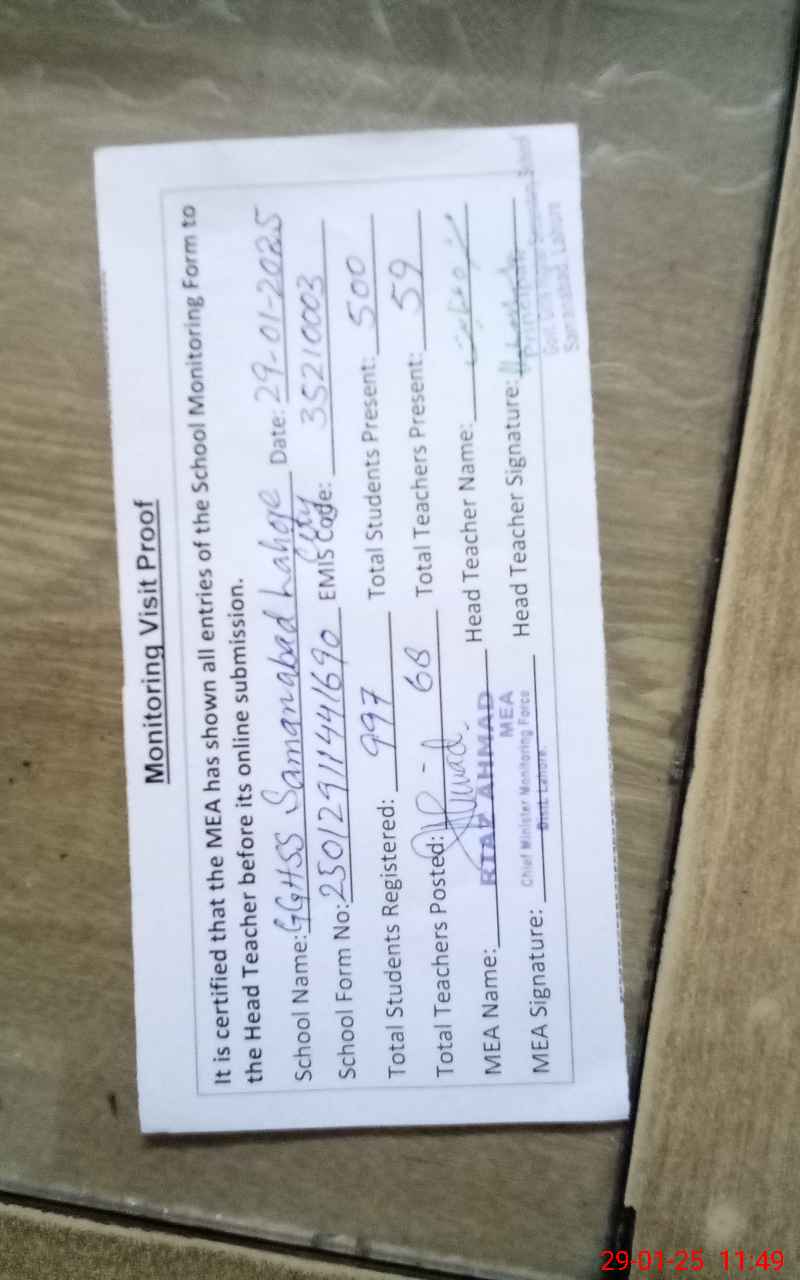 Monitoring Visit Proof
It is certified that the MEA has shown all entries of the School Monitoring Form to
the Head Teacher before its online submission.
School Name: GGHSS Samanabad Lahore City Date: 29-01-2025
School Form No: 250129111441690 EMIS Code: 35210003
Total Students Registered: 997 Total Students Present: 500
Total Teachers Posted: 68 Total Teachers Present: 59
MEA Name: RIAZ AHMAD Head Teacher Name:
MEA Signature: Head Teacher Signature:
Chief Minister Monitoring Force
MEA
Distt. Lahore.
Principal
Govt. Girls Higher Secondary School
Samanabad, Lahore
29-01-25 11:49